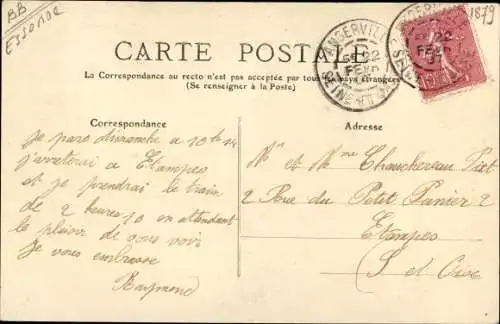 BB
ESSONNE
1879
CARTE POSTALE
La Correspondance au recto n'est pas acceptée par tous les pays étrangers
(Se renseigner à la Poste)
ANGERVILLE
22
FEVR
SEINE-ET-
22
FEVR
07
Correspondance
Adresse
je pars dimanche a 10h
j'arreterai a Etampes
et je prendrai le train
de 2 heures 10 en attendant
le plaisir de vous voir
je vous embrasse
Raymond
Mr et Mme Chauchereau
2 Rue du Petit Panier 2
Etampes
S et Oise